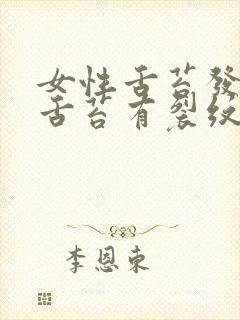 女性舌苔發
舌苔有裂纹
李恩東